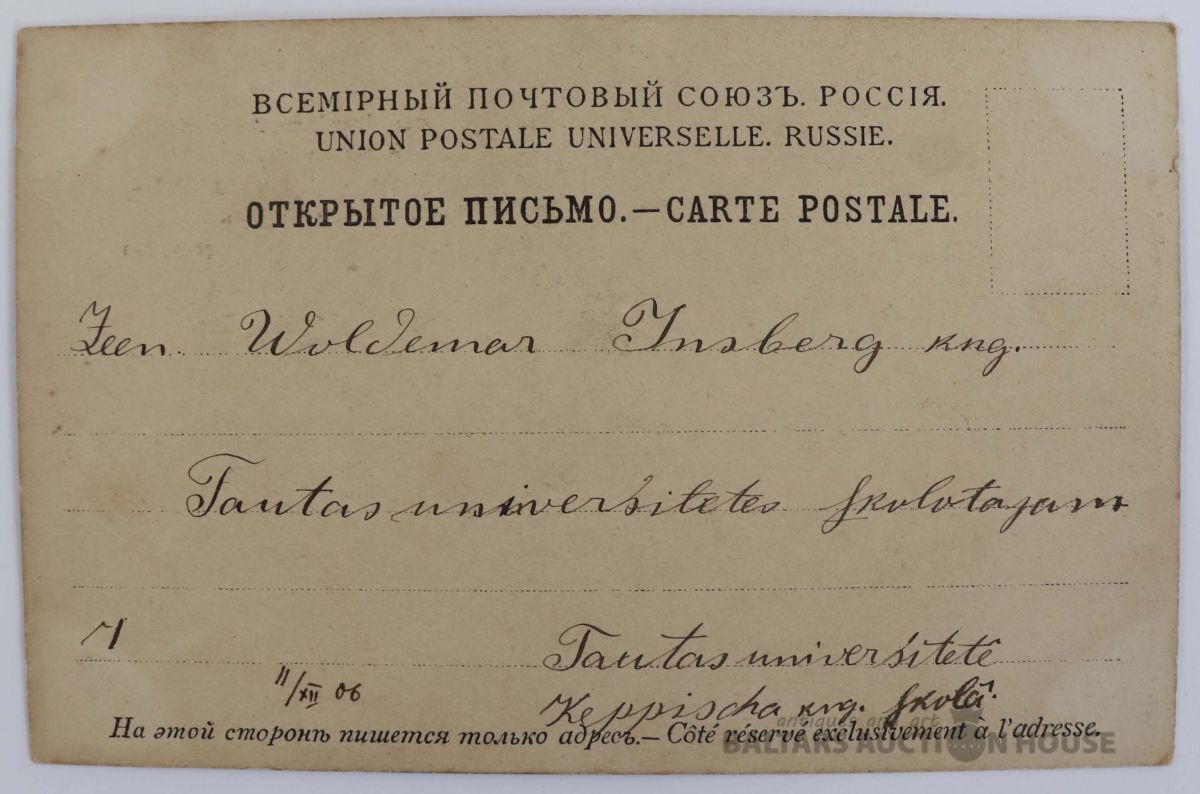 ВСЕМІРНЫЙ ПОЧТОВЫЙ СОЮЗЪ. РОССІЯ.
UNION POSTALE UNIVERSELLE. RUSSIE.
ОТКРЫТОЕ ПИСЬМО.—CARTE POSTALE.
Zeen. Woldemar Insberg kng.
Tautas universitetes skolotajam
Tautas universitetê
11/XII 06
Keppischa kng. skolâ.
antiques and art
На этой сторонѣ пишется только адресъ.— Côté réservé exclusivement à l'adresse.
BALTARS AUCTION HOUSE